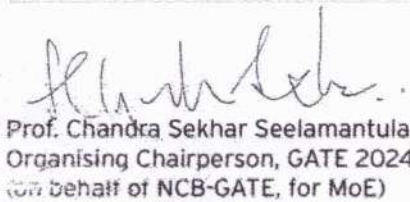 Prof. Chandra Sekhar Seelamantula
Organising Chairperson, GATE 2024
(on behalf of NCB-GATE, for MoE)